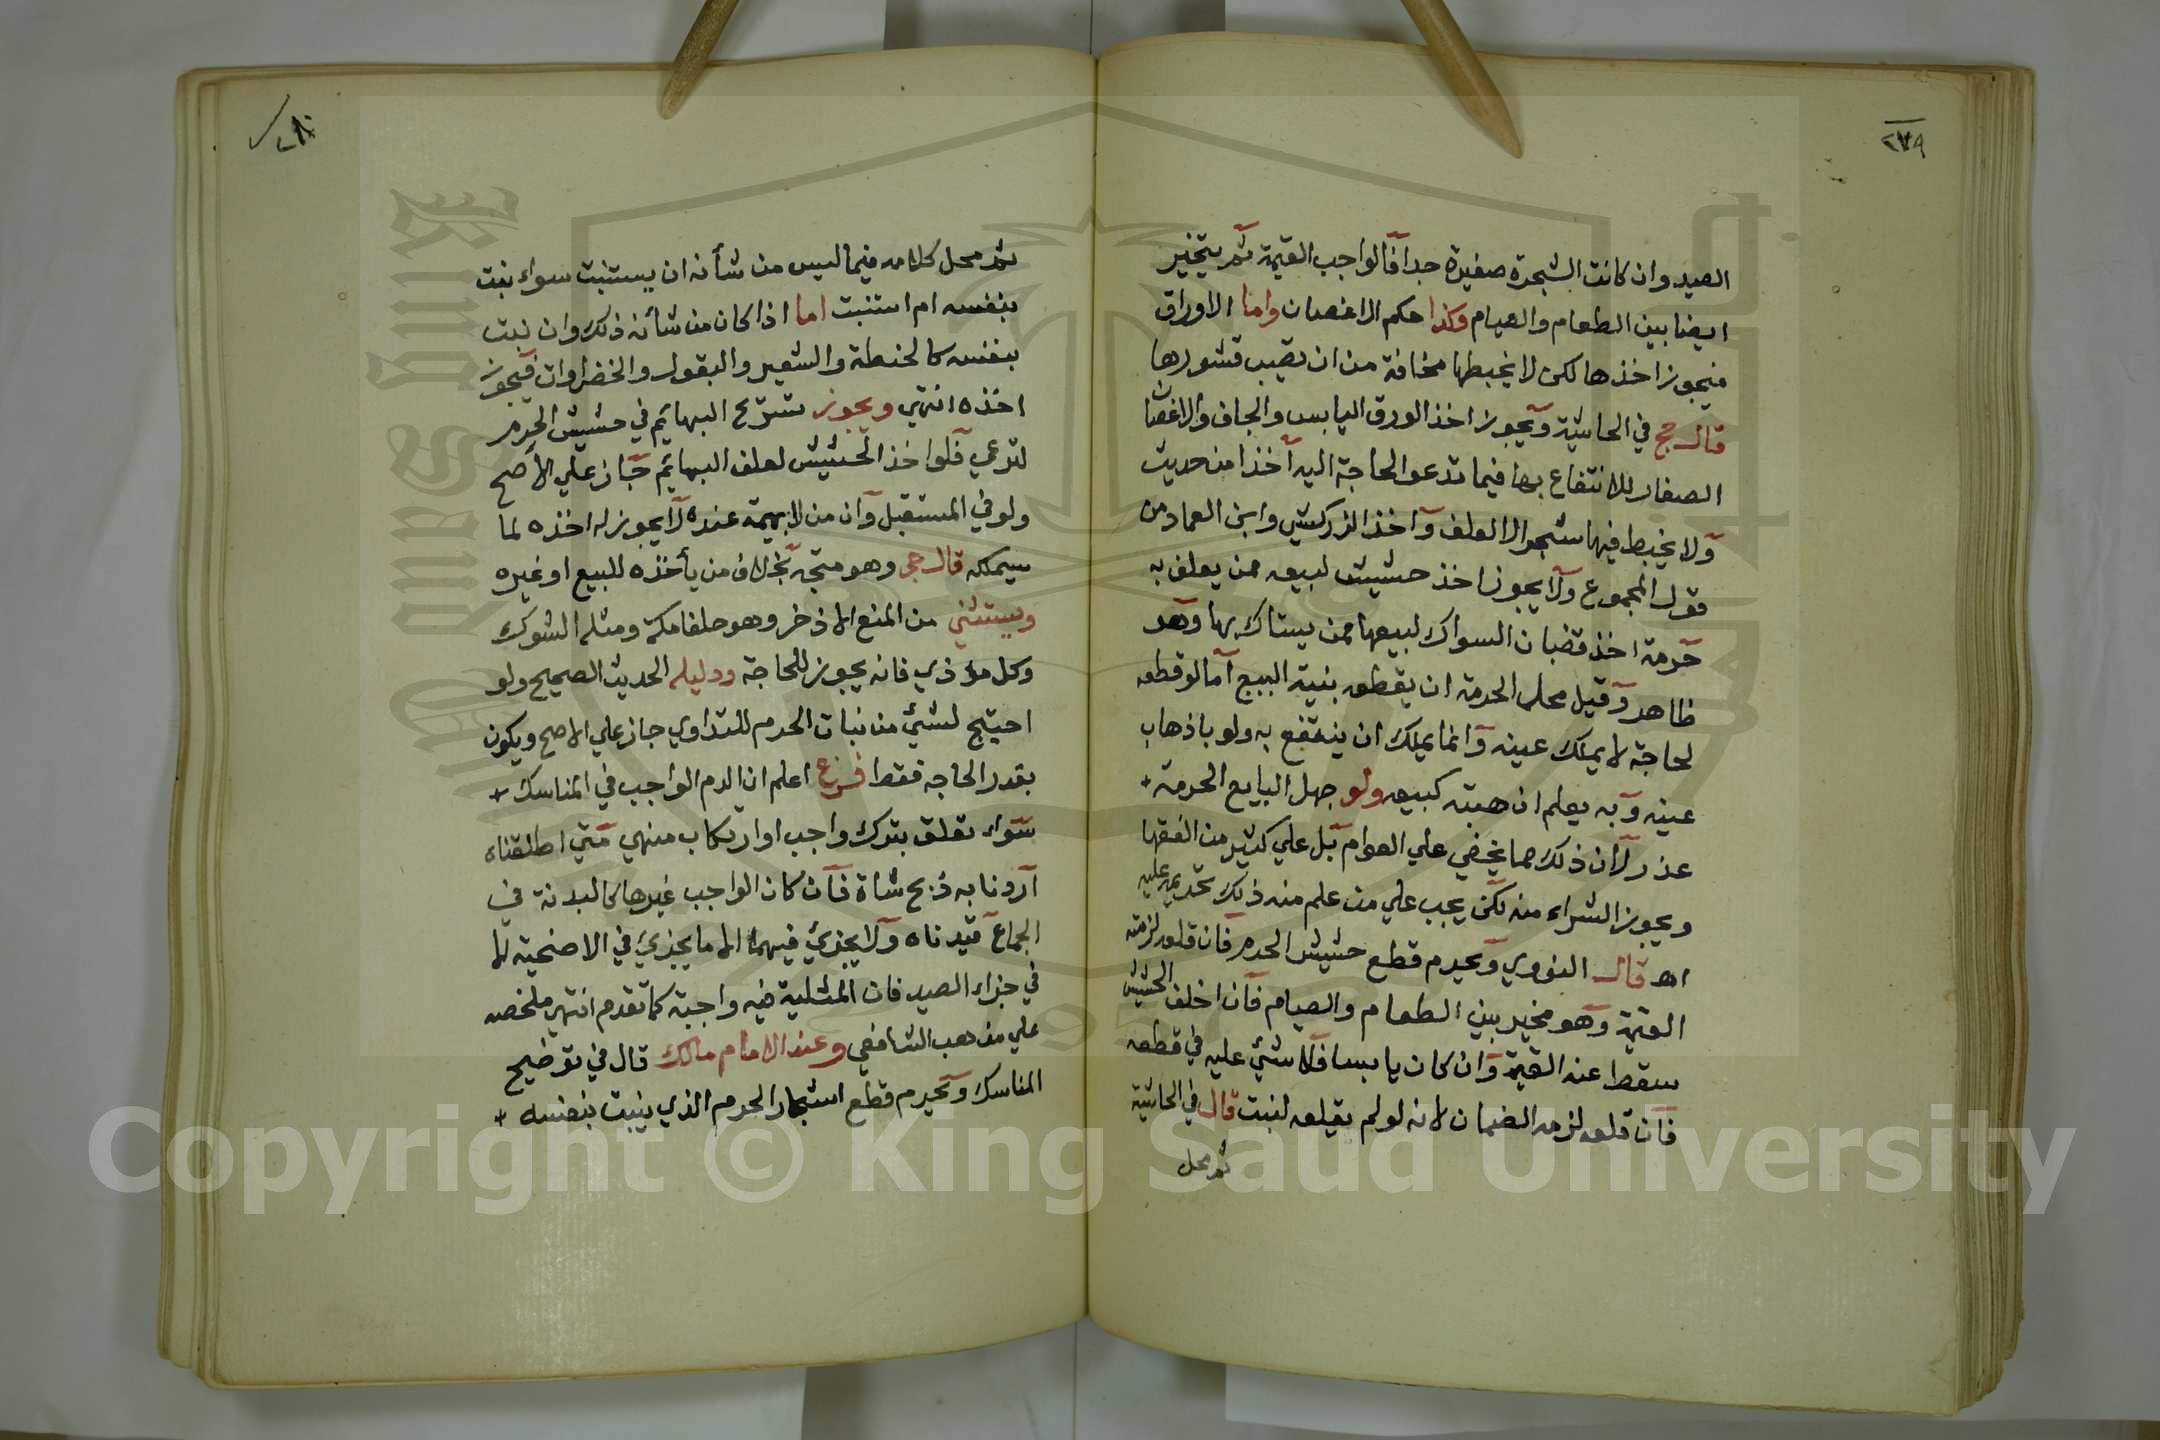 ٢٧٩
الصيد وان كانت الشجرة صغيرة جدا فالواجب القيمة ثم يتخير
ايضا بين الطعام والصيام وكذا حكم الاغصان واما الاوراق
فيجوز اخذها لكن لا يخبطها مخافة من ان يصيب قشورها
قال حج في الحاشية ويجوز اخذ الورق اليابس والجاف والاغصان
الصغار للانتفاع بها فيما تدعو الحاجة اليه اخذا من حديث
ولا يخبط فيها شجر الا لعلف واخذ الزركشي وابن العماد من
قول المجموع ولا يجوز اخذ حشيش لبيعه ممن يعلف به
حرمة اخذ قضبان السواك لبيعها ممن يستاك بها وهو
ظاهر وقيل محل الحرمة ان يقطعه بنية البيع اما لو قطعه
لحاجة لا يملك عينه وانما يملك ان ينتفع به ولو باذهاب
عينه وبه يعلم ان هبته كبيعه ولو جهل البايع الحرمة
عذر لان ذلك مما يخفي علي العوام بل علي كثير من الفقها
ويجوز الشراء منه لكن يجب علي من علم منه ذلك تحريمه عليه
اهـ قال النووي ويحرم قطع حشيش الحرم فان قلعه لزمته
القيمة وهو مخير بين الطعام والصيام فان اخلف الحشيش
سقط عنه القيمة وان كان يابسا فلا شيء عليه في قطعه
فان قلعه لزمه الضمان لانه لو لم يقلعه لنبت قال في الحاشية
ثم محل
٢٨٠
ثم محل كلامه فيما ليس من شأنه ان يستنبت سواء نبت
بنفسه ام استنبت اما اذا كان من شأنه ذلك وان نبت
بنفسه كالحنطة والشعير والبقول والخضراوات فيجوز
اخذه انتهي ويجوز تسريح البهائم في حشيش الحرم
لترعي فلو اخذ الحشيش لعلف البهائم جاز علي الاصح
ولو في المستقبل وان من لا بهيمة عنده لا يجوز له اخذه لما
سيملكه قال حج وهو متجه بخلاف من يأخذه للبيع او غيره
ويستثني من المنع الاذخر وهو حلفا مكة ومثله الشوك
وكل مؤذي فانه يجوز للحاجة ودليله الحديث الصحيح ولو
احتيج لشيء من نبات الحرم للتداوي جاز علي الاصح ويكون
بقدر الحاجه فقط فرع اعلم ان الدم الواجب في المناسك
سواء تعلق بترك واجب او ارتكاب منهي متي اطلقناه
اردنا به ذبح شاة فان كان الواجب غيرها كالبدنة في
الجماع قيدناه ولا يجزئ فيهما الا ما يجزئ في الاضحية لا
في جزاء الصيد فان المثلية فيه واجبة كما تقدم انتهي ملخصه
علي مذهب الشافعي وعند الامام مالك قال في توضيح
المناسك ويحرم قطع اشجار الحرم الذي ينبت بنفسه
Copyright © King Saud University
King Saud University
1957